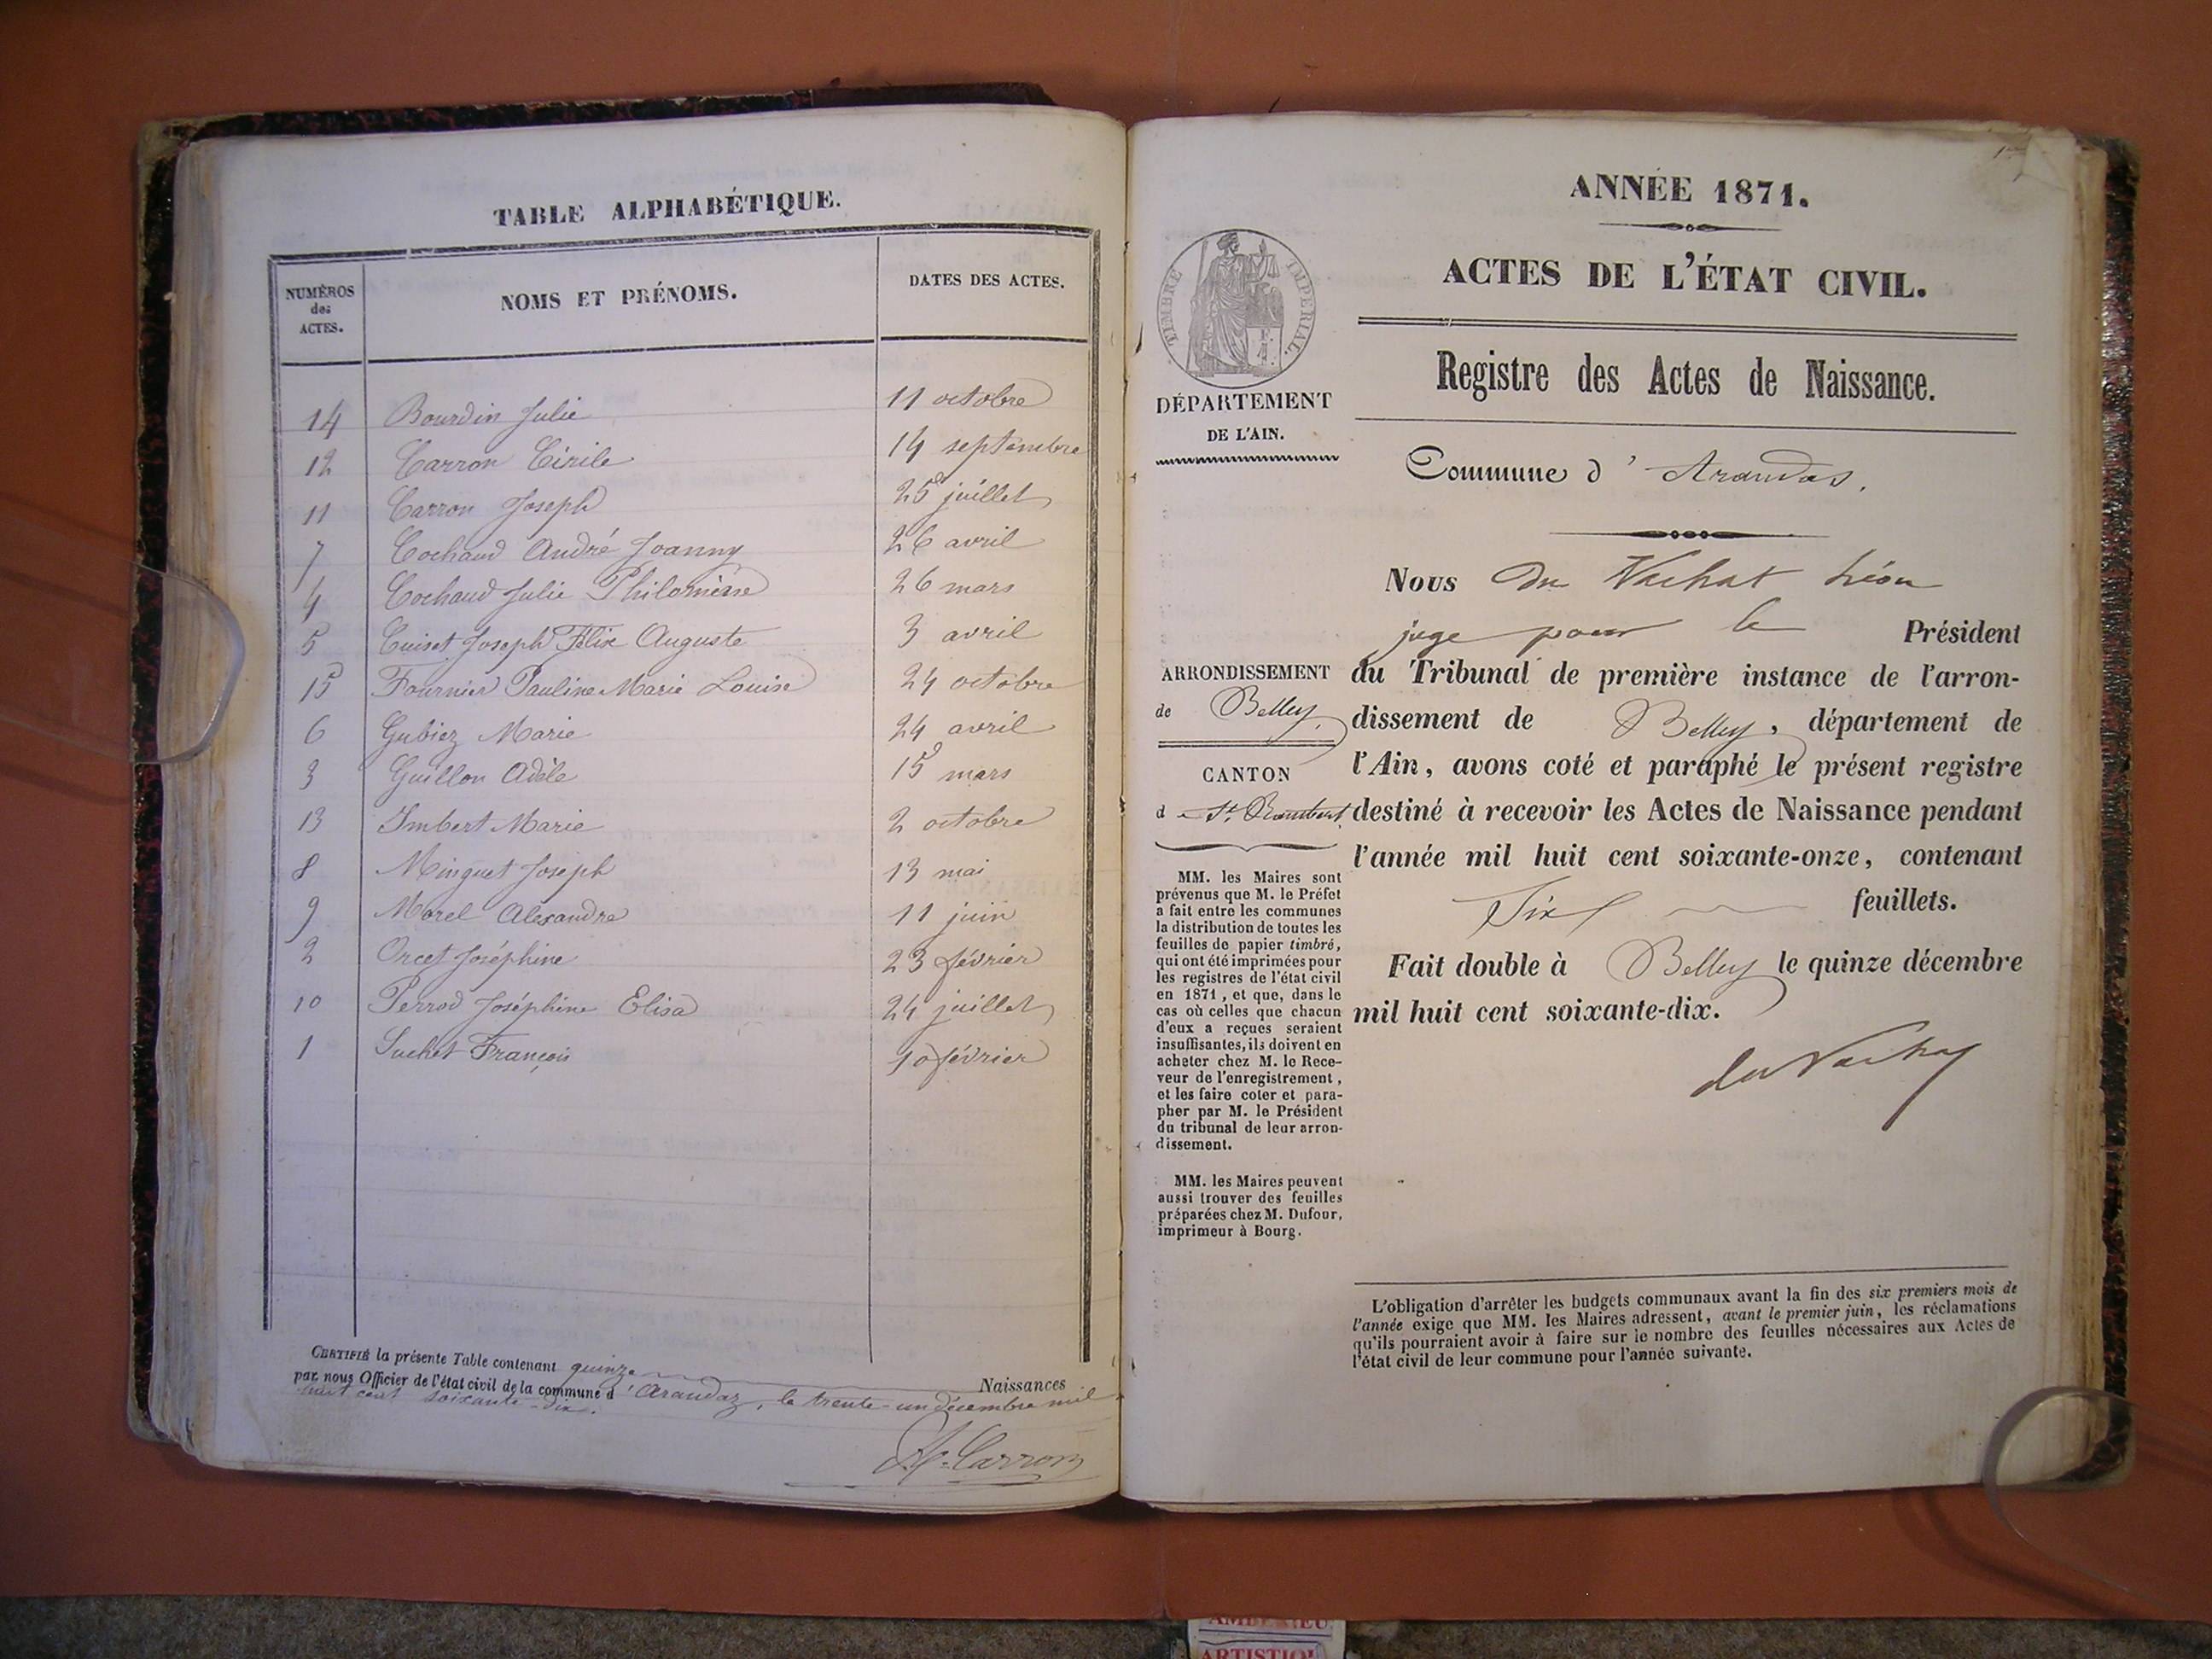 TABLE ALPHABÉTIQUE.
NUMÉROS des ACTES.
NOMS ET PRÉNOMS.
DATES DES ACTES.
14 Bourdin Julie 11 octobre
12 Carron Cirile 14 septembre
11 Carron Joseph 25 juillet
7 Cochaud André Joanny 26 avril
4 Cochaud Julie Philomène 26 mars
5 Cuiset Joseph Félix Auguste 3 avril
15 Fournier Pauline Marie Louise 24 octobre
6 Gubiez Marie 24 avril
3 Guillon Adèle 15 mars
13 Imbert Marie 2 octobre
8 Minguet Joseph 13 mai
9 Morel Alexandre 11 juin
2 Orcet Joséphine 23 février
10 Perrod Joséphine Elisa 24 juillet
1 Suchet François 10 février
CERTIFIÉ la présente Table contenant quinze Naissances
par nous Officier de l'état civil de la commune d'Arandaz, le trente-un décembre mil
huit cent soixante-dix.
Carron
ANNÉE 1871.
ACTES DE L'ÉTAT CIVIL.
Registre des Actes de Naissance.
Commune d'Arandas.
TIMBRE IMPÉRIAL.
DÉPARTEMENT
DE L'AIN.
ARRONDISSEMENT
de Belley.
CANTON
d St. Rambert
MM. les Maires sont
prévenus que M. le Préfet
a fait entre les communes
la distribution de toutes les
feuilles de papier timbré,
qui ont été imprimées pour
les registres de l'état civil
en 1871, et que, dans le
cas où celles que chacun
d'eux a reçues seraient
insuffisantes, ils doivent en
acheter chez M. le Rece-
veur de l'enregistrement,
et les faire coter et para-
pher par M. le Président
du tribunal de leur arron-
dissement.
MM. les Maires peuvent
aussi trouver des feuilles
préparées chez M. Dufour,
imprimeur à Bourg.
Nous du Vachat Léon
juge pour le Président
du Tribunal de première instance de l'arron-
dissement de Belley, département de
l'Ain, avons coté et paraphé le présent registre
destiné à recevoir les Actes de Naissance pendant
l'année mil huit cent soixante-onze, contenant
Six feuillets.
Fait double à Belley le quinze décembre
mil huit cent soixante-dix.
du Vachat
L'obligation d'arrêter les budgets communaux avant la fin des six premiers mois de
l'année exige que MM. les Maires adressent, avant le premier juin, les réclamations
qu'ils pourraient avoir à faire sur le nombre des feuilles nécessaires aux Actes de
l'état civil de leur commune pour l'année suivante.